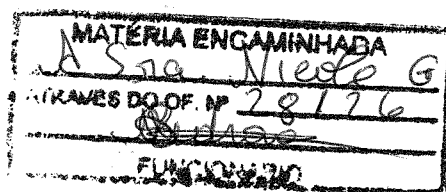 MATÉRIA ENCAMINHADA
A Sra. Nicole G
ATRAVES DO OF. Nº 28/26
FUNCIONÁRIO